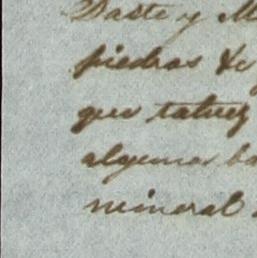 Daste y M
piedras de
que talvez
algunas ba
mineral